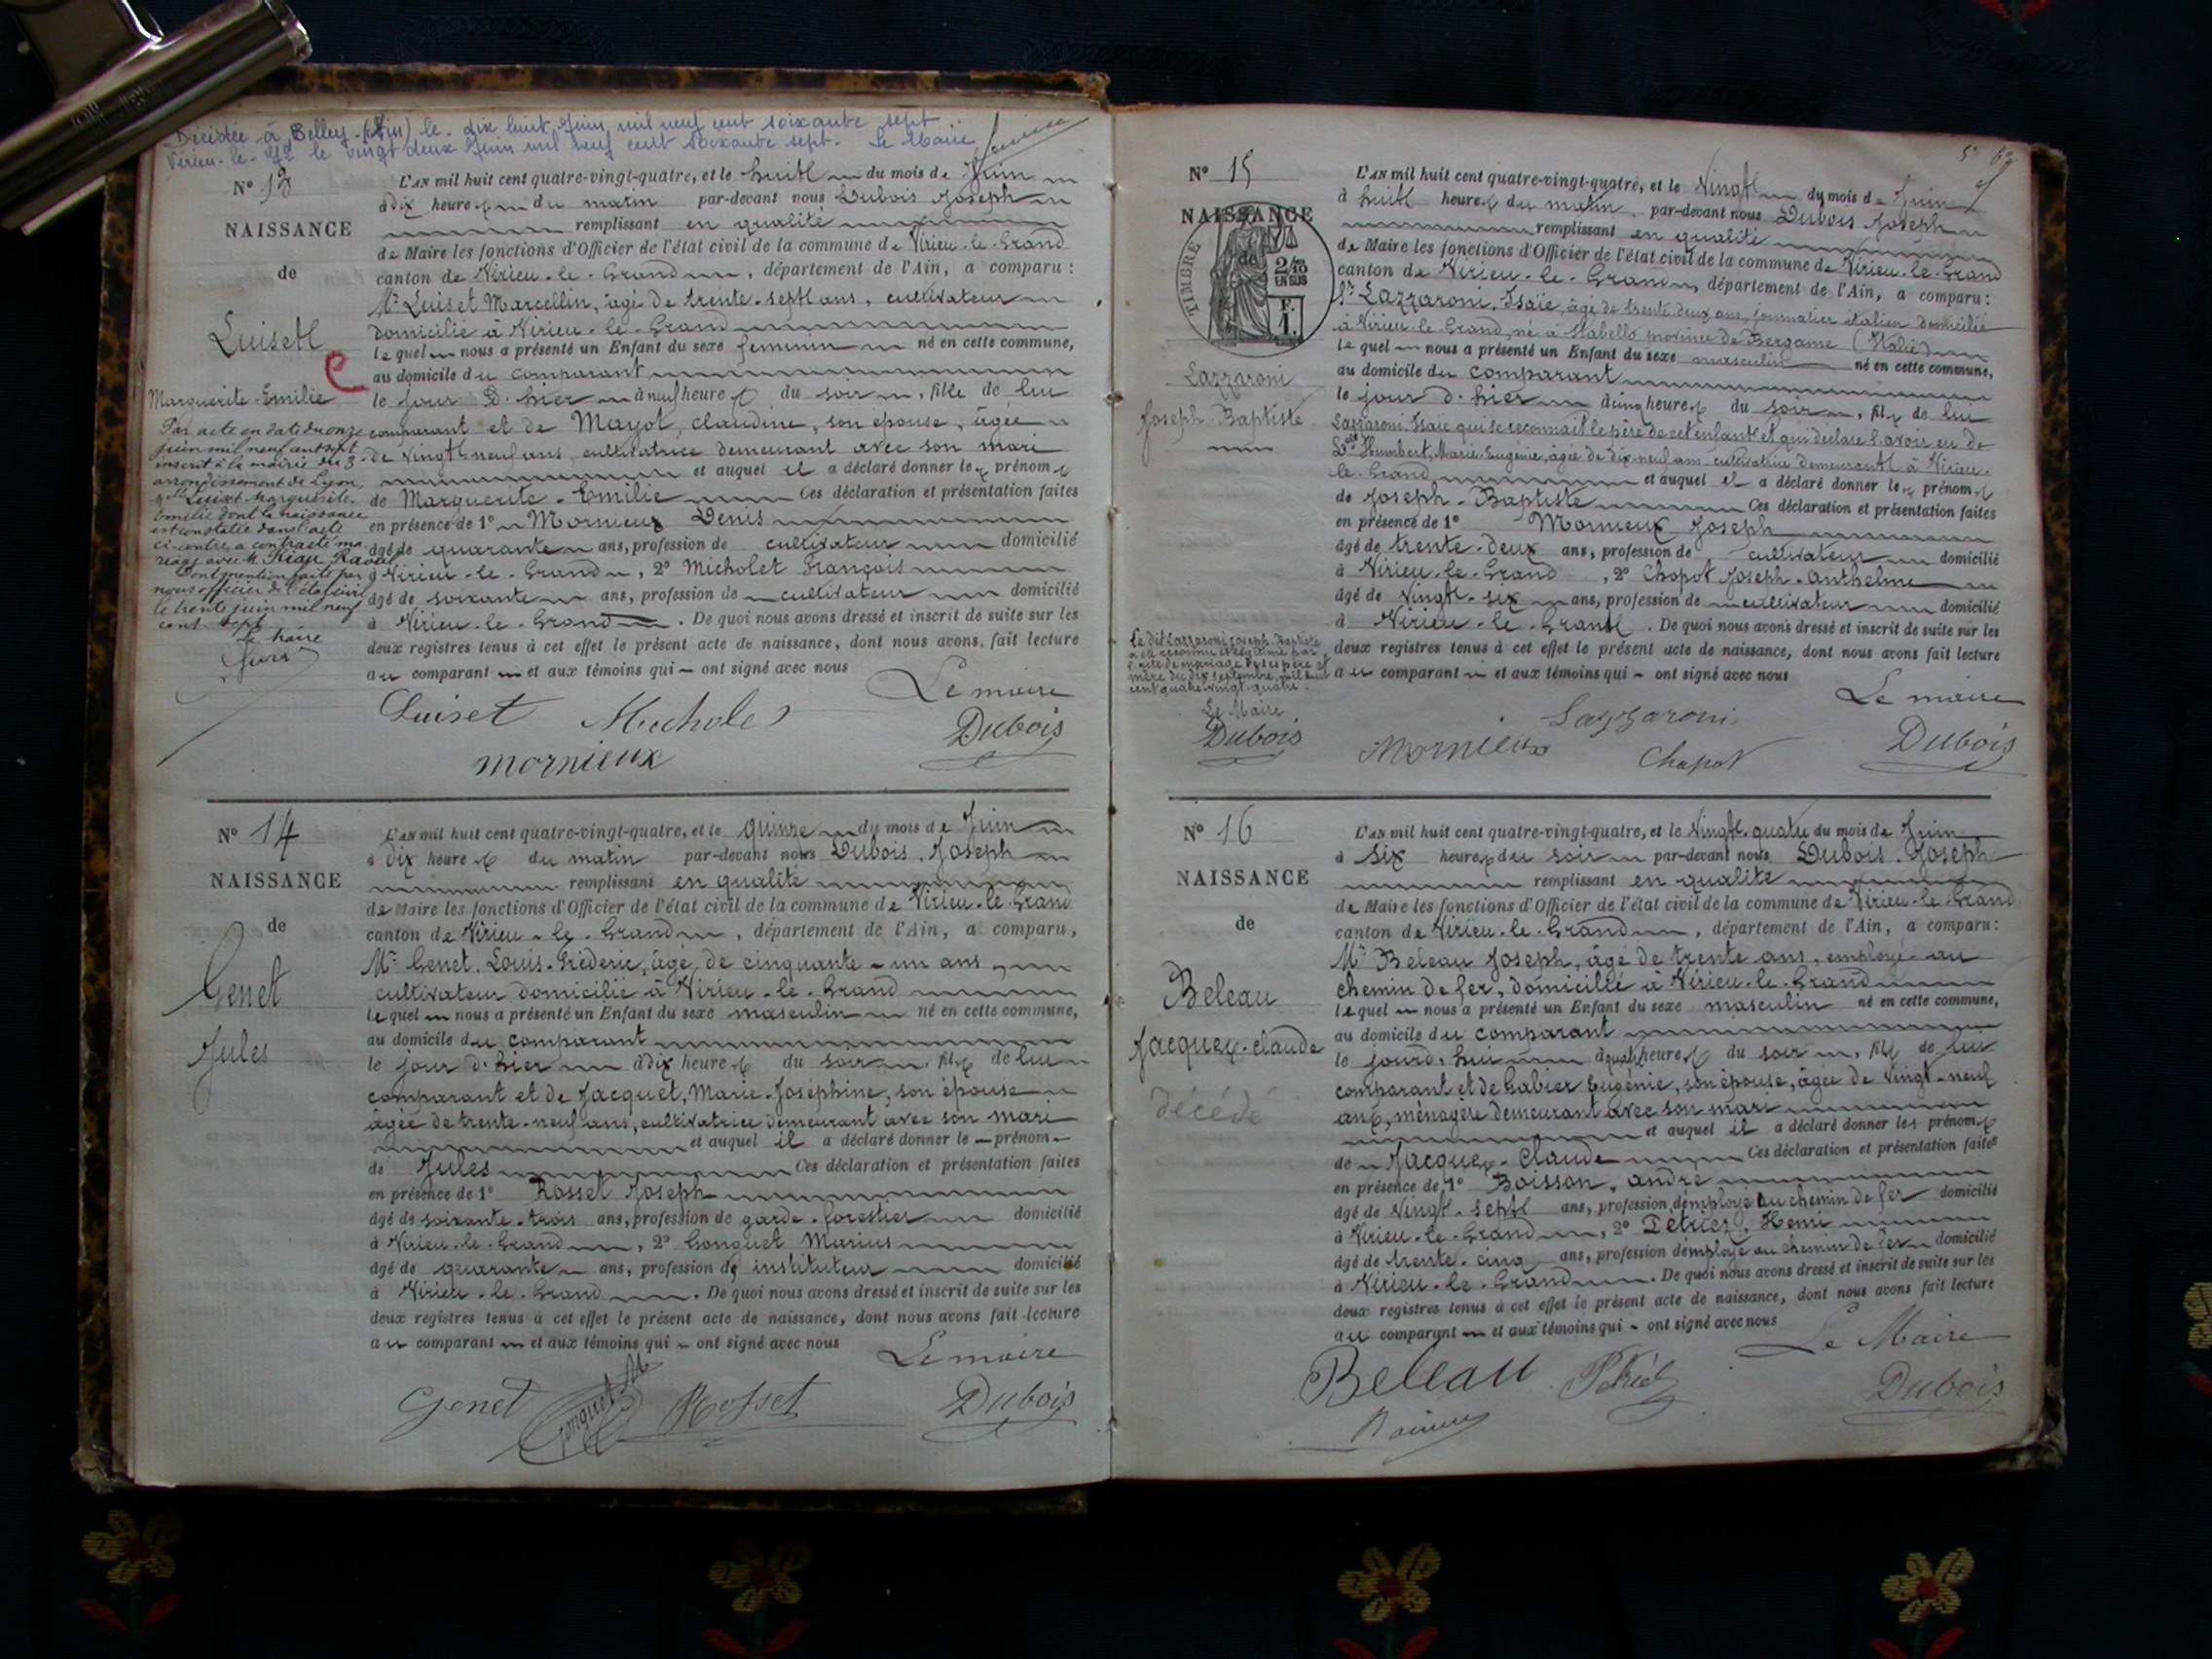 Décédée à Belley (Ain) le dix huit Juin mil neuf cent soixante sept.
Virieu-le-Gd le vingt deux Juin mil neuf cent soixante sept. Le Maire
N° 13
NAISSANCE
de
Luiset
Marguerite-Emilie
Par acte en date du onze
juin mil neuf cent sept
inscrit à la mairie du 3e
arrondissement de Lyon,
Luiset Marguerite
Emilie dont la naissance
est constatée dans l'acte
ci-contre, a contracté ma-
riage avec M.
Dont mention faite par
nous officier de l'état civil
le trente juin mil neuf
cent sept.
Le Maire
L'AN mil huit cent quatre-vingt-quatre, et le huit du mois de Juin
à dix heures du matin par-devant nous Dubois Joseph
remplissant en qualité
de Maire les fonctions d'Officier de l'état civil de la commune de Virieu-le-Grand
canton de Virieu-le-Grand, département de l'Ain, a comparu :
Mr Luiset Marcellin, âgé de trente-sept ans, cultivateur
domicilié à Virieu-le-Grand
lequel nous a présenté un Enfant du sexe féminin né en cette commune,
au domicile du comparant
le jour d'hier à neuf heures du soir, fille de lui
comparant et de Mayot, Claudine, son épouse, âgée
de vingt-neuf ans, cultivatrice demeurant avec son mari
et auquel il a déclaré donner les prénoms
de Marguerite-Emilie Ces déclaration et présentation faites
en présence de 1° Mornieux Denis
âgé de quarante ans, profession de cultivateur domicilié
à Virieu-le-Grand, 2° Micholet François
âgé de soixante ans, profession de cultivateur domicilié
à Virieu-le-Grand. De quoi nous avons dressé et inscrit de suite sur les
deux registres tenus à cet effet le présent acte de naissance, dont nous avons fait lecture
au comparant et aux témoins qui ont signé avec nous
Le maire
Luiset Micholet
Dubois
mornieux
N° 14
NAISSANCE
de
Genet
Jules
L'AN mil huit cent quatre-vingt-quatre, et le quinze du mois de Juin
à dix heures du matin par-devant nous Dubois, Joseph
remplissant en qualité
de Maire les fonctions d'Officier de l'état civil de la commune de Virieu-le-Grand
canton de Virieu-le-Grand, département de l'Ain, a comparu,
Mr Genet, Louis-Fréderic, âgé de cinquante-un ans,
cultivateur domicilié à Virieu-le-Grand
lequel nous a présenté un Enfant du sexe masculin né en cette commune,
au domicile du comparant
le jour d'hier à dix heures du soir, fils de lui
comparant et de Jacquet, Marie-Joséphine, son épouse
âgée de trente-neuf ans, cultivatrice demeurant avec son mari
et auquel il a déclaré donner le prénom
de Jules Ces déclaration et présentation faites
en présence de 1° Rosset Joseph
âgé de soixante-trois ans, profession de garde-forestier domicilié
à Virieu-le-Grand, 2° Gonguet Marius
âgé de quarante ans, profession de instituteur domicilié
à Virieu-le-Grand. De quoi nous avons dressé et inscrit de suite sur les
deux registres tenus à cet effet le présent acte de naissance, dont nous avons fait lecture
au comparant et aux témoins qui ont signé avec nous
Le maire
Genet Gonguet Rosset Dubois
N° 15
NAISSANCE
de
TIMBRE
2/10
EN SUS
F.
1.
Lazzaroni
Joseph-Baptiste
Le dit Lazzaroni Joseph-Baptiste
a été reconnu et légitimé par
l'acte de mariage de ses père et
mère du dix septembre mil huit
cent quatre-vingt-quatre.
Le Maire
Dubois
L'AN mil huit cent quatre-vingt-quatre, et le Vingt du mois de Juin
à huit heures du matin par-devant nous Dubois Joseph
remplissant en qualité
de Maire les fonctions d'Officier de l'état civil de la commune de Virieu-le-Grand
canton de Virieu-le-Grand, département de l'Ain, a comparu :
Sr Lazzaroni, Isaïe, âgé de trente deux ans, journalier italien domicilié
à Virieu-le-Grand, né à Stabello province de Bergame (Italie)
lequel nous a présenté un Enfant du sexe masculin né en cette commune,
au domicile du comparant
le jour d'hier à cinq heures du soir, fils de lui
Lazzaroni Isaïe qui se reconnaît le père de cet enfant et qui déclare l'avoir eu de
Humbert, Marie-Eugénie, âgée de dix-neuf ans, cultivatrice demeurant à Virieu-
le-Grand et auquel il a déclaré donner les prénoms
de Joseph-Baptiste Ces déclaration et présentation faites
en présence de 1° Mornieux Joseph
âgé de trente-deux ans, profession de cultivateur domicilié
à Virieu-le-Grand, 2° Chapot Joseph-Anthelme
âgé de vingt-six ans, profession de cultivateur domicilié
à Virieu-le-Grand. De quoi nous avons dressé et inscrit de suite sur les
deux registres tenus à cet effet le présent acte de naissance, dont nous avons fait lecture
au comparant et aux témoins qui ont signé avec nous
Le maire
Lazzaroni
Mornieux Chapot Dubois
N° 16
NAISSANCE
de
Beleau
Jacques-Claude
décédé
L'AN mil huit cent quatre-vingt-quatre, et le Vingt-quatre du mois de Juin
à six heures du soir par-devant nous Dubois Joseph
remplissant en qualité
de Maire les fonctions d'Officier de l'état civil de la commune de Virieu-le-Grand
canton de Virieu-le-Grand, département de l'Ain, a comparu :
Mr Beleau Joseph, âgé de trente ans, employé au
chemin de fer, domicilié à Virieu-le-Grand
lequel nous a présenté un Enfant du sexe masculin né en cette commune,
au domicile du comparant
le jourd'hui à quatre heures du soir, fils de lui
comparant et de Gabier Eugénie, son épouse, âgée de vingt-neuf
ans, ménagère demeurant avec son mari
et auquel il a déclaré donner les prénoms
de Jacques-Claude Ces déclaration et présentation faites
en présence de 1° Boisson, André
âgé de vingt-sept ans, profession d'employé au chemin de fer domicilié
à Virieu-le-Grand, 2° Henri
âgé de trente-cinq ans, profession d'employé au chemin de fer domicilié
à Virieu-le-Grand. De quoi nous avons dressé et inscrit de suite sur les
deux registres tenus à cet effet le présent acte de naissance, dont nous avons fait lecture
au comparant et aux témoins qui ont signé avec nous
Le Maire
Beleau
Dubois